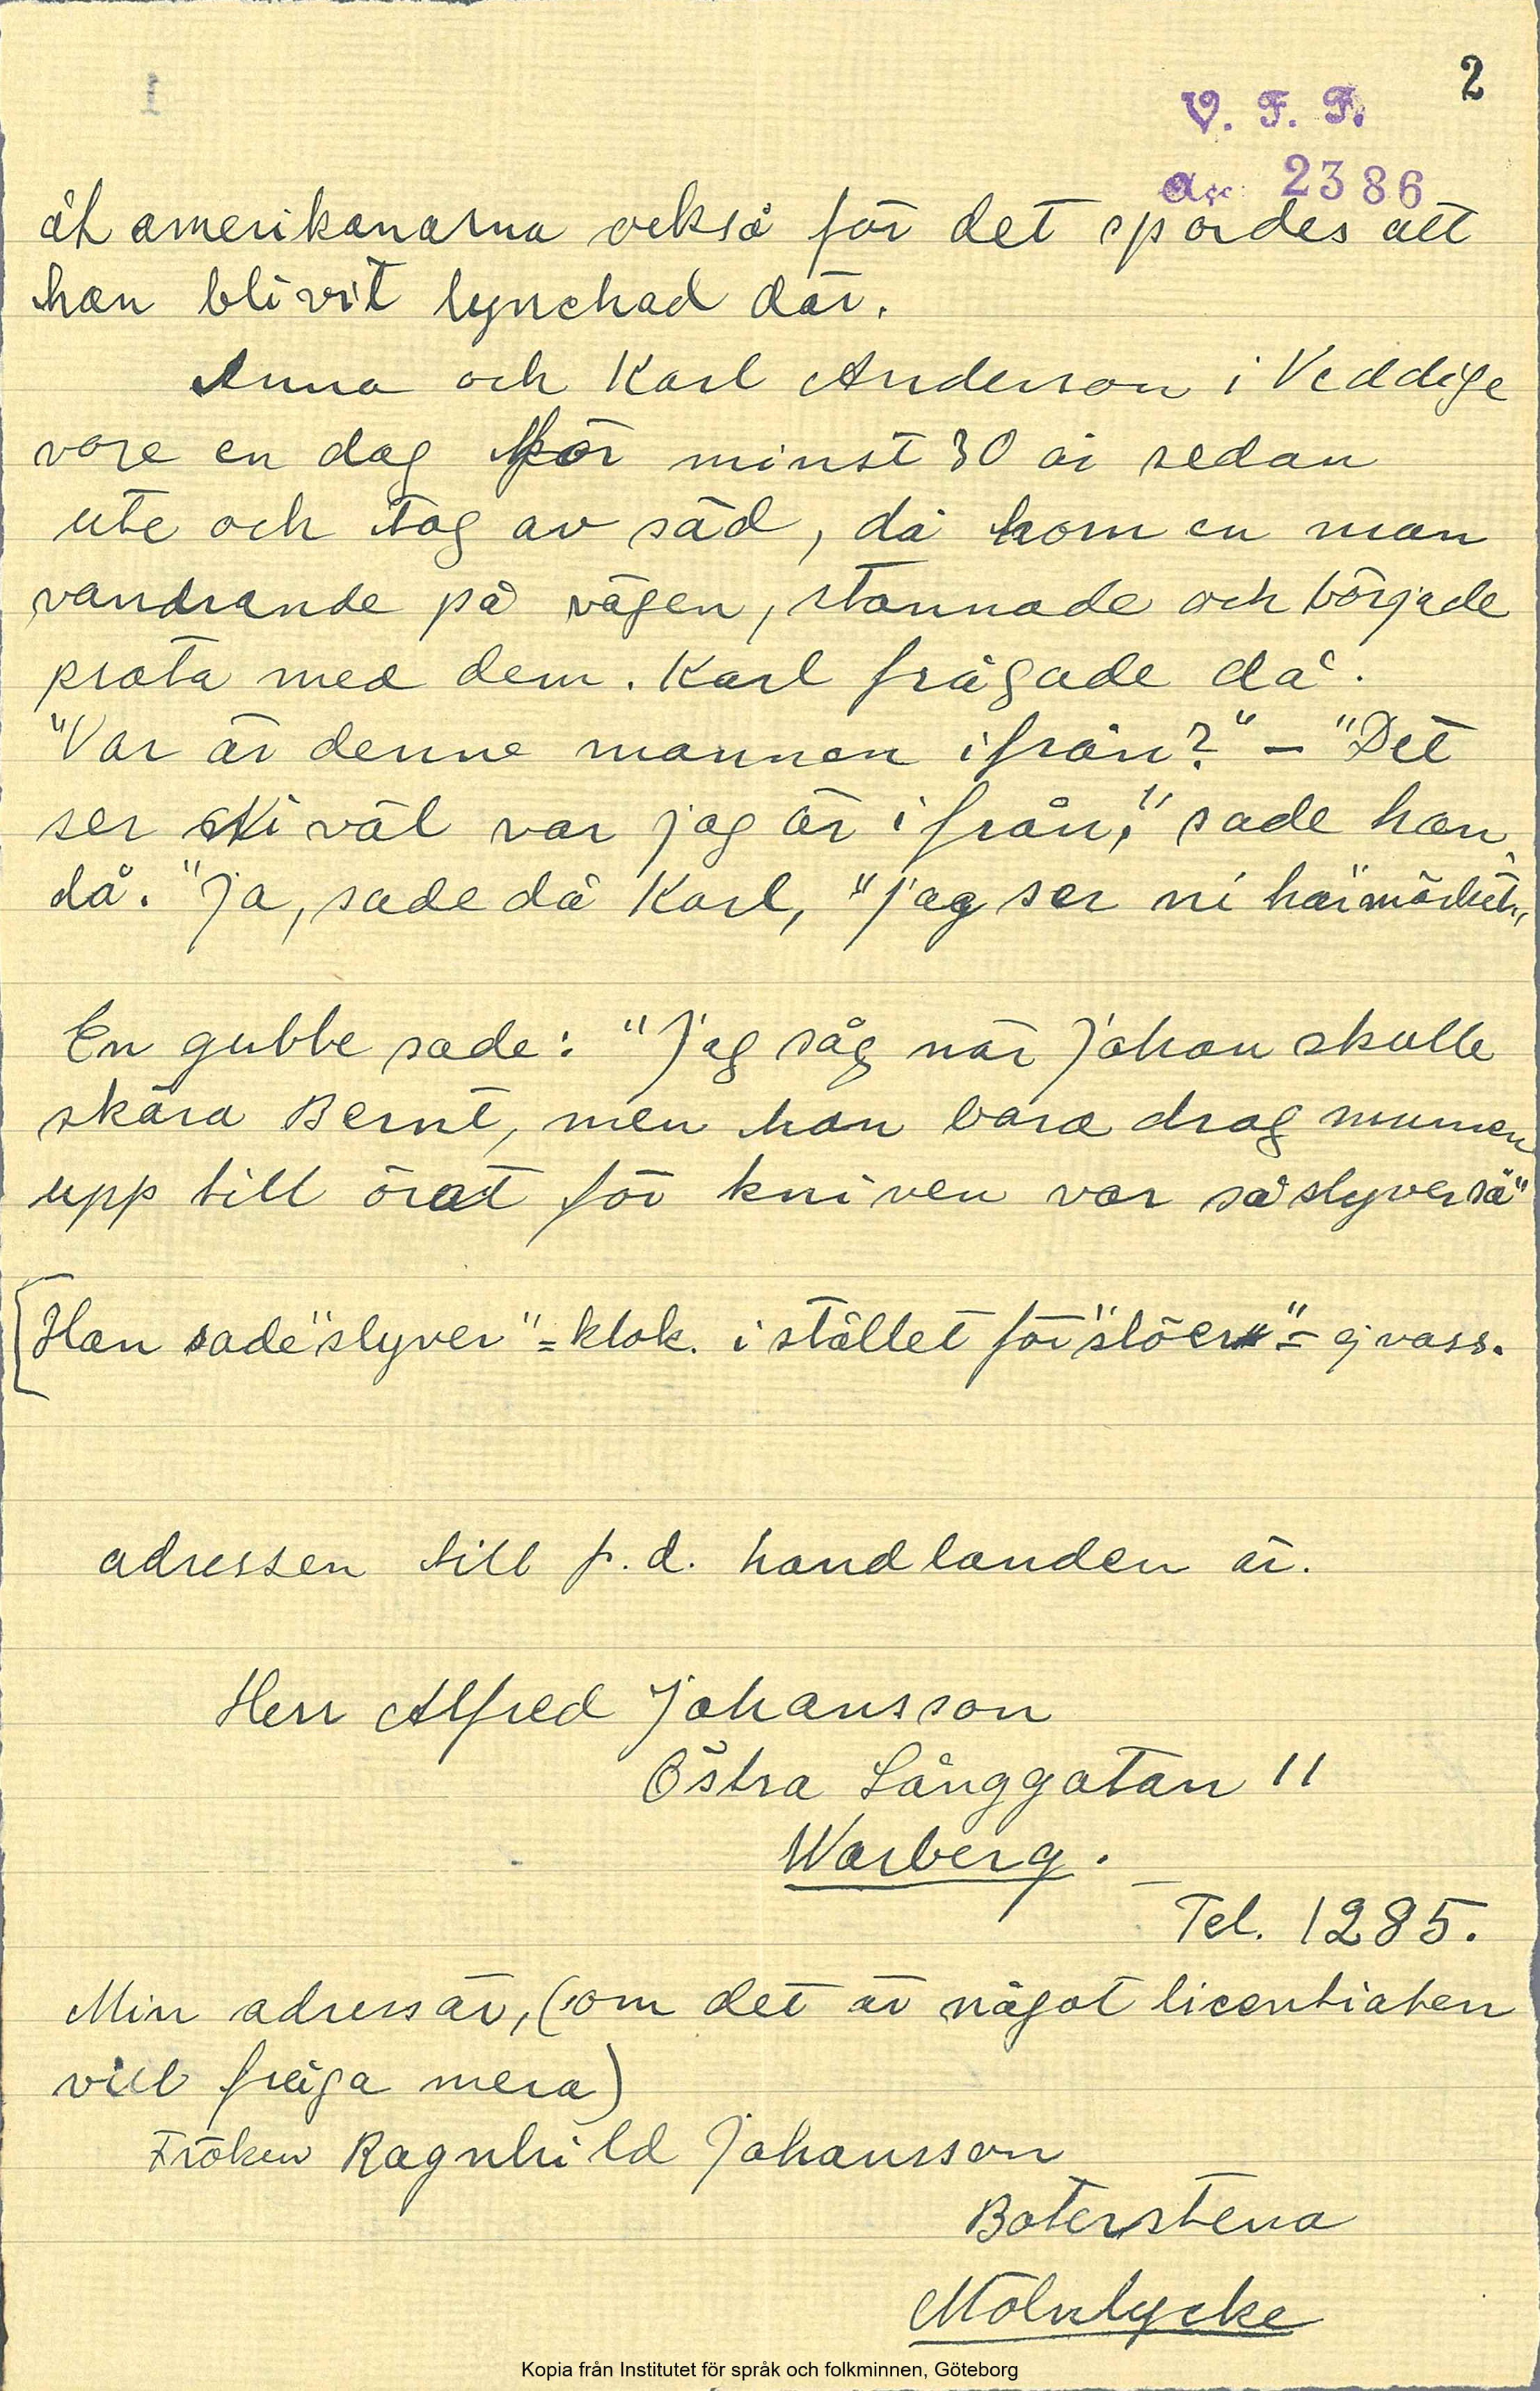 2
V. F. F.
acc. 2386
åt amerikanarna också för det spordes att
han blivit lynchad där.
Anna och Karl Anderson i Veddige
vore en dag för minst 30 år sedan
ute och tog av säd, då kom en man
vandrande på vägen, stannade och började
prata med dem. Karl frågade då.
"Var är denne mannen ifrån?" – "Det
ser Ni väl var jag är ifrån," sade han
då. "Ja, sade då Karl, "jag ser ni har "märket"
En gubbe sade: "Jag såg när Johan skulle
skära Bernt, men han bara drog munnen
upp till örat för kniven var så slyver så"
[Han sade "slyver" = klok. i stället för "slöer" = ej vass.
adressen till f.d. handlanden är.
Herr Alfred Johansson
Östra Långgatan 11
Warberg.
Tel. 1285.
Min adress är, (om det är något licentiaten
vill fråga mera)
Fröken Ragnhild Johansson
Boterstena
Mölnlycke
Kopia från Institutet för språk och folkminnen, Göteborg